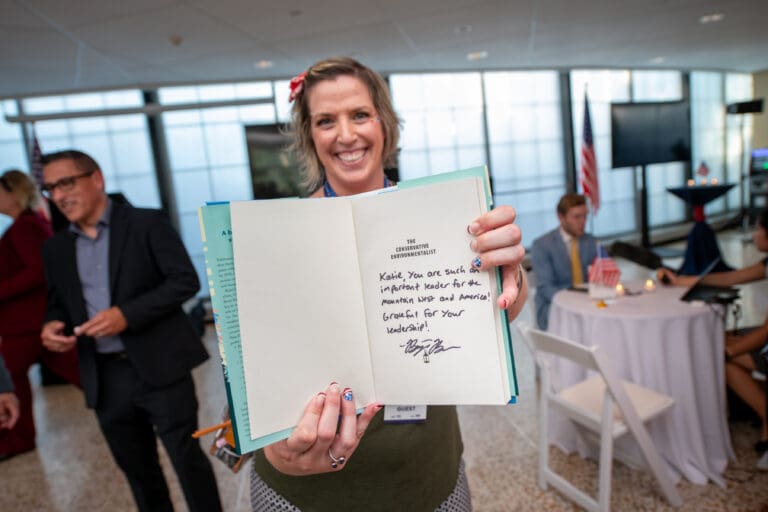 THE
CONSERVATIVE
ENVIRONMENTALIST
Katie, you are such an
important leader for the
mountain west and America!
Grateful for your
leadership!
GUEST